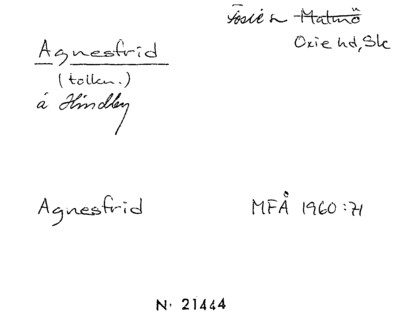 Fosie sn Malmö
Oxie hd, Sk
Agnesfrid
(tolkn.)
á Hindby
Agnesfrid
MFÅ 1960:71
N. 21444